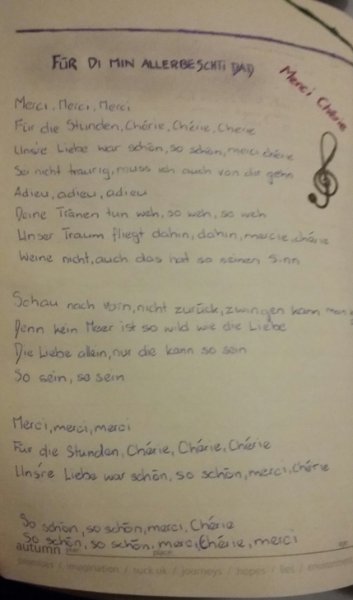 FÜR DI MIN ALLERBESCHTI DAD
Merci Chérie
Merci, Merci, Merci
Für die Stunden, Chérie, Chérie, Chérie
Unsre Liebe war schön, so schön, merci, chérie
Sei nicht traurig, muss ich auch von dir gehn
Adieu, adieu, adieu
Deine Tränen tun weh, so weh, so weh
Unser Traum fliegt dahin, dahin, mercie, chérie
Weine nicht, auch das hat so seinen Sinn
Schau nach vorn, nicht zurück, zwingen kann man
Denn kein Meer ist so wild wie die Liebe
Die Liebe allein, nur die kann so sein
So sein, so sein
Merci, merci, merci
Für die Stunden, Chérie, Chérie, Chérie
Uns're Liebe war schön, so schön, merci, chérie
So schön, so schön, merci, Chérie
So schön, so schön, merci, Chérie, merci
autumn place
promises / imagination / suck uk / journeys / hopes / lies /